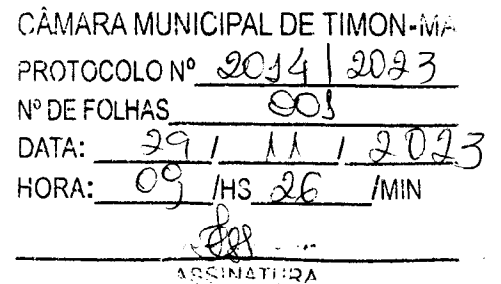 CÂMARA MUNICIPAL DE TIMON-MA
PROTOCOLO Nº 2014 | 2023
Nº DE FOLHAS 001
DATA: 29 / 11 / 2023
HORA: 09 /HS 26 /MIN
ASSINATURA